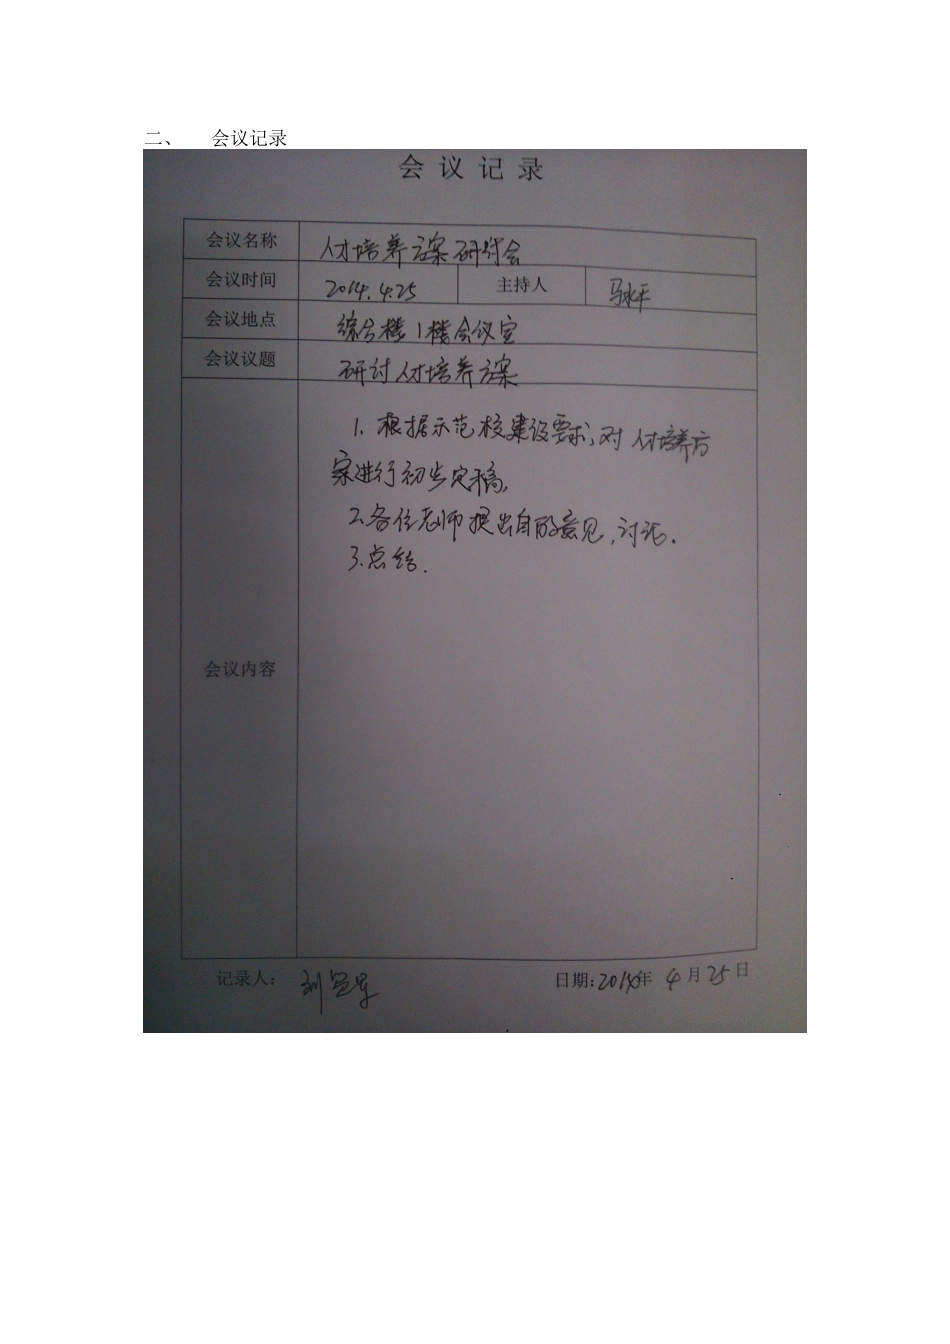 二、 会议记录
会 议 记 录
会议名称 人才培养方案研讨会
会议时间 2014.4.25 主持人 马永平
会议地点 综合楼1楼会议室
会议议题 研讨人才培养方案
1、根据示范校建设要求,对人才培养方
案进行初步定稿,
2、各位老师提出自的意见,讨论.
3.总结.
会议内容
记录人: 刘 日期:2014年 4月25日